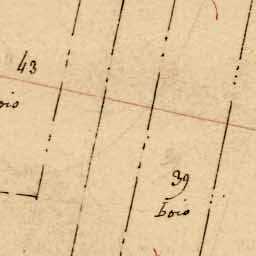 43
bois
39
bois